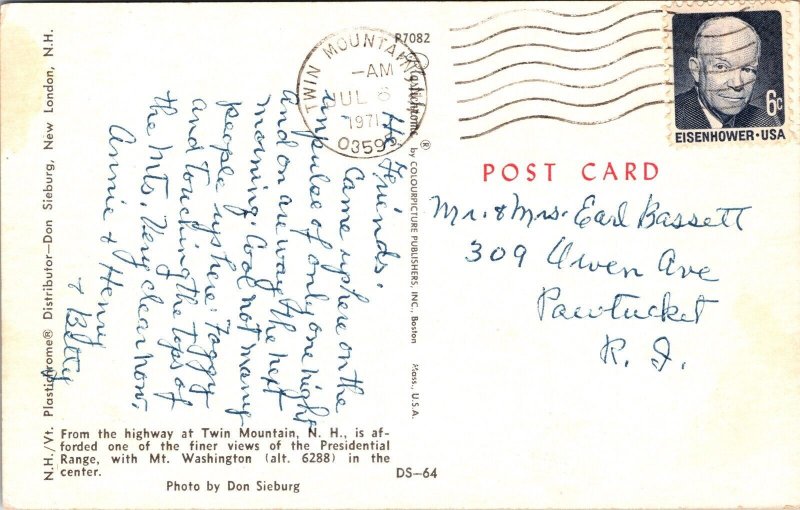 P7082
TWIN MOUNTAIN
-AM
JUL 6
1971
0359
6c
EISENHOWER·USA
POST CARD
Mr. & Mrs. Earl Bassett
309 Owen Ave
Pawtucket
R. I.
Hi Friends.
Came up here on the
impulse of only one night
and on our way the next
morning. Cool not many
people up here. Foggy
and touching the tops of
the Mts. Very clear now.
Annie & Henry
& Betty
Plastichrome® by COLOURPICTURE PUBLISHERS, INC., Boston Mass., U.S.A.
N.H./Vt. Plastichrome® Distributor—Don Sieburg, New London, N.H.
From the highway at Twin Mountain, N. H., is af-
forded one of the finer views of the Presidential
Range, with Mt. Washington (alt. 6288) in the
center.
Photo by Don Sieburg
DS-64